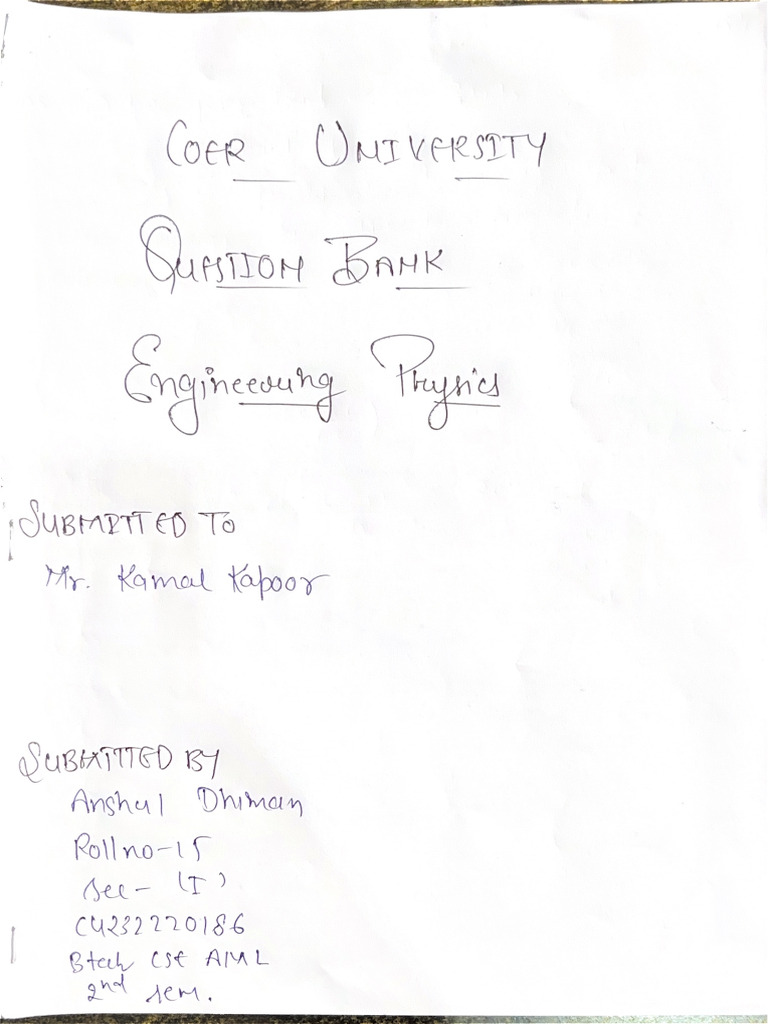 COER UNIVERSITY
QUESTION BANK
Engineering Physics
SUBMITTED TO
Mr. Kamal Kapoor
SUBMITTED BY
Anshul Dhiman
Roll no-15
sec- (I)
CU232220186
Btech CSE AIML
2nd sem.